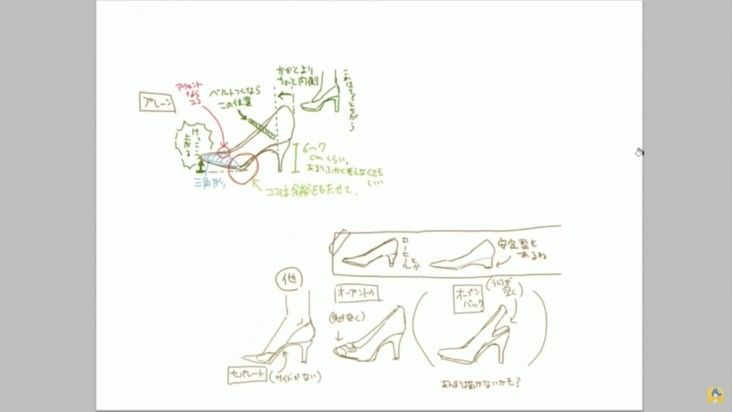 プレーン
アクセント
なら
ココ
ベルトつくなら
この位置
かかとより
ちょっと内側
これはちょとちがう
けっこう
上がる
三角形。
6〜7
cmくらい。
あまりふかく考えなくても
いい
ココは余裕をもたせて、
ローヒールとか
安定型も
あるね
他
オープントゥ
(先が空く)
オープン
バック
(うしろが
空く)
セパレート
(サイドがない)
あんまり描かないかも?